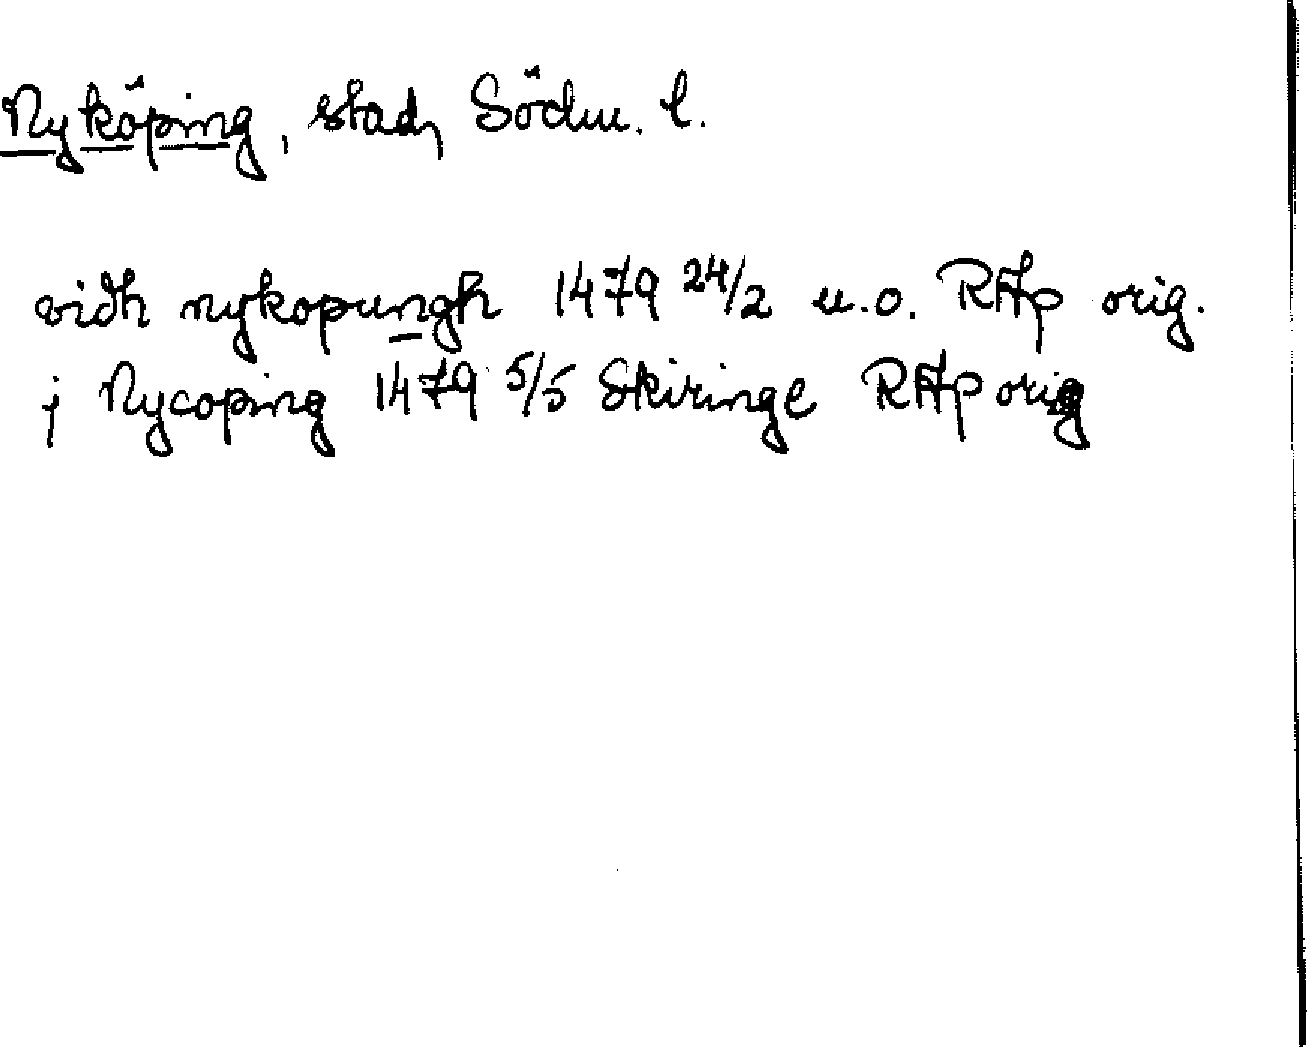 Nyköping, stad, Södm. l.
vidh nykopungh 1479 24/2 u.o. RAp orig.
j Nycoping 1479 5/5 Skiringe RAp orig